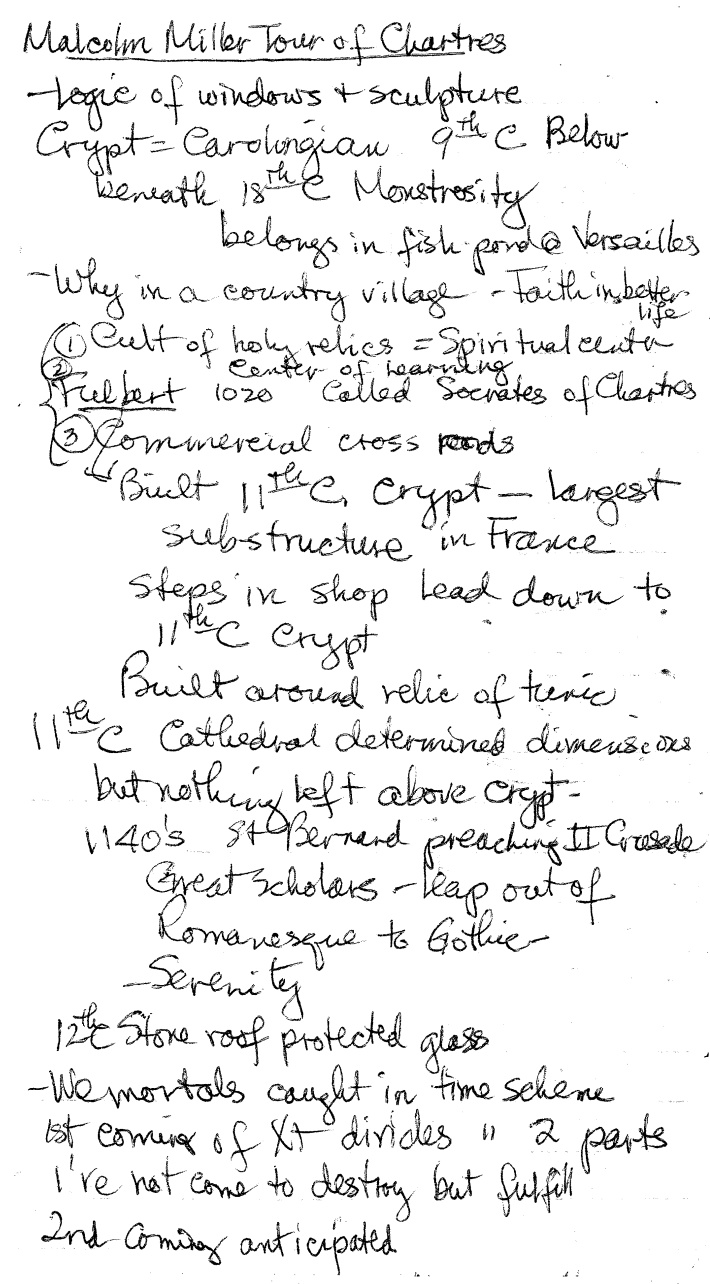 Malcolm Miller Tour of Chartres
- Logic of windows + sculpture
Crypt = Carolingian 9th C Below
beneath 18th C Monstrosity
belongs in fish pond @ Versailles
- Why in a country village - Faith in better
life
① Cult of holy relics = Spiritual center
② Center of learning
Fulbert 1020 Called Socrates of Chartres
③ Commercial cross roads
Built 11th C. Crypt — largest
substructure in France
Steps in shop lead down to
11th C Crypt
Built around relic of tunic
11th C Cathedral determined dimensions
but nothing left above crypt -
1140's St Bernard preaching II Crusade
Great Scholars - leap out of
Romanesque to Gothic -
- Serenity
12th C Stone roof protected glass
- We mortals caught in time scheme
1st coming of Xt divides " 2 parts
I've not come to destroy but fulfill
2nd Coming anticipated